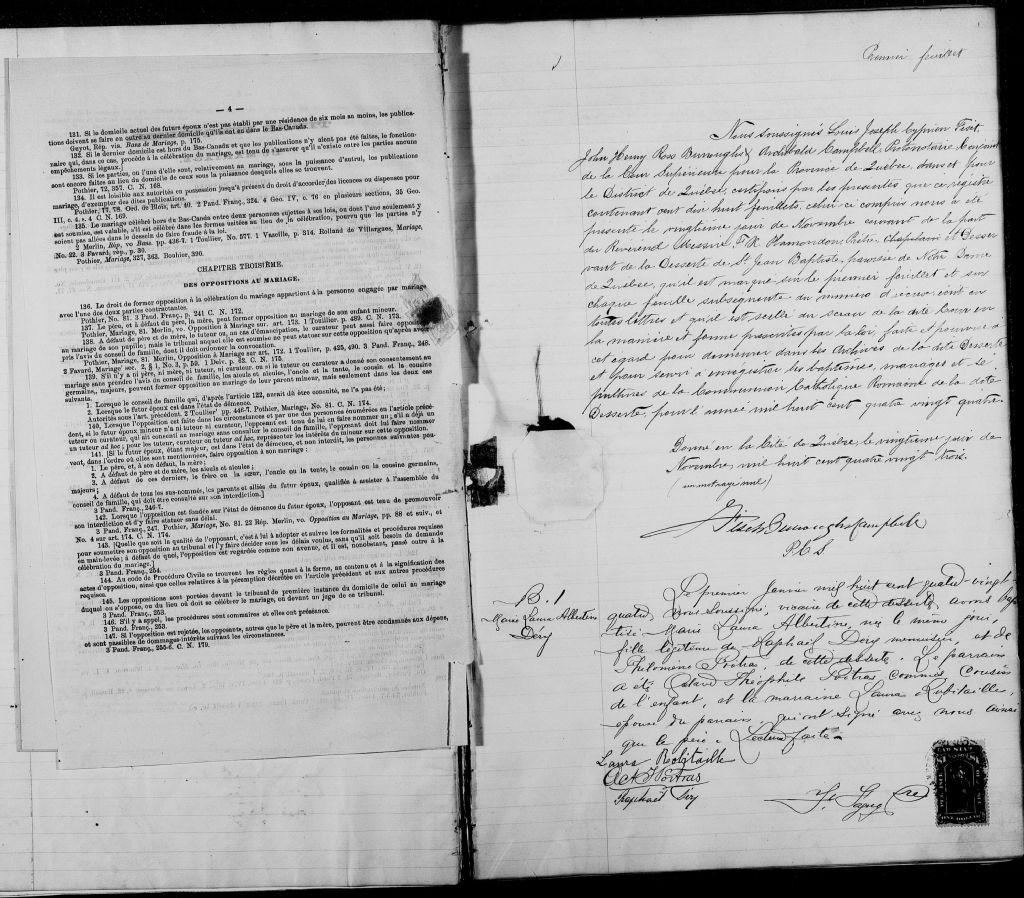 — 4 —
131. Si le domicile actuel des futurs époux n'est pas établi par une résidence de six mois au moins, les publica-
tions doivent se faire en outre au dernier domicile qu'ils ont eu dans le Bas-Canada.
Guyot, Rép. vis. Bans de Mariage, p. 175.
132. Si le dernier domicile est hors du Bas-Canada et que les publications n'y aient pas été faites, le fonction-
naire qui, dans ce cas, procède à la célébration du mariage, est tenu de s'assurer qu'il n'existe entre les parties aucuns
empêchements légaux.]
133. Si les parties, ou l'une d'elles, sont, relativement au mariage, sous la puissance d'autrui, les publications
sont encore faites au lieu du domicile de ceux sous la puissance desquels elles se trouvent.
Pothier, 72, 357. C. N. 168.
134. Il est loisible aux autorités en possession jusqu'à présent du droit d'accorder des licences ou dispenses pour
mariage, d'exempter des dites publications.
Pothier, 77, 78. Ord. de Blois, art. 40. 2 Pand. Franç., 324. 4 Geo. IV, c. 76 en plusieurs sections, 35 Geo.
III, c. 4, s. 4. C. N. 169.
135. Le mariage célébré hors du Bas-Canada entre deux personnes sujettes à ses lois, ou dont l'une seulement y
est soumise, est valable, s'il est célébré dans les formes usitées au lieu de la célébration, pourvu que les parties n'y
soient pas allées dans le dessein de faire fraude à la loi.
2 Merlin, Rép, vo. Bans. pp. 436-7. 1 Toullier, No. 577. 1 Vazeille, p. 314. Rolland de Villargues, Mariage,
No. 22. 3 Favard, rep., p. 30.
Pothier, Mariage, 327, 363. Bouhier, 390.
CHAPITRE TROISIÈME.
DES OPPOSITIONS AU MARIAGE.
136. Le droit de former opposition à la célébration du mariage appartient à la personne engagée par mariage
avec l'une des deux parties contractantes.
Pothier, No. 81. 3 Pand. Franç., p. 241 C. N. 172.
137. Le père, et à défaut du père, la mère, peut former opposition au mariage de son enfant mineur.
Pothier, Mariage, 81. Merlin, vo. Opposition à Mariage sur art. 173. 1 Toullier, p. 489. C. N. 173.
138. A défaut de père et de mère, le tuteur, ou, au cas d'émancipation, le curateur peut aussi faire opposition
au mariage de son pupille; mais le tribunal auquel elle est soumise ne peut statuer sur cette opposition qu'après avoir
pris l'avis du conseil de famille, dont il doit ordonner la convocation.
Pothier, Mariage, 81. Merlin, Opposition à Mariage sur art. 172. 1 Toullier, p. 425, 490. 3 Pand. Franç., 248.
2 Favard, Mariage, sec. 2, § 1, No. 3, p. 59. 1 Delv. p. 52. C. N. 175.
139. S'il n'y a ni père, ni mère, ni tuteur, ni curateur, ou si le tuteur ou curateur a donné son consentement au
mariage sans prendre l'avis du conseil de famille, les aïeuls et aïeules, l'oncle et la tante, le cousin et la cousine
germains, majeurs, peuvent former opposition au mariage de leur parent mineur, mais seulement dans les deux cas
suivants.
1. Lorsque le conseil de famille qui, d'après l'article 122, aurait dû être consulté, ne l'a pas été;
2. Lorsque le futur époux est dans l'état de démence.
Autorités sous l'art. précédent. 2 Toullier, pp. 446-7. Pothier, Mariage, No. 81. C. N. 174.
140. Lorsque l'opposition est faite dans les circonstances et par une des personnes énumérées en l'article précé-
dent, si le futur époux mineur n'a ni tuteur ni curateur, l'opposant est tenu de lui en faire nommer un; s'il a déjà un
tuteur ou curateur, qui ait consenti au mariage sans consulter le conseil de famille, l'opposant doit lui faire nommer
un tuteur ad hoc; pour les tuteur, curateur ou tuteur ad hoc, représenter les intérêts du mineur sur cette opposition.
141. [Si le futur époux, étant majeur, est dans l'état de démence, et non interdit, les personnes suivantes peu-
vent, dans l'ordre où elles sont mentionnées, faire opposition à son mariage:
1. Le père, et, à son défaut, la mère;
2. A défaut de père et de mère, les aïeuls et aïeules;
3. A défaut de ces derniers, le frère ou la sœur, l'oncle ou la tante, le cousin ou la cousine germains,
majeurs;
4. A défaut de tous les sus-nommés, les parents et alliés du futur époux, qualifiés à assister à l'assemblée du
conseil de famille, qui doit être consulté sur son interdiction.]
3 Pand. Franç., 246-7.
142. Lorsque l'opposition est fondée sur l'état de démence du futur époux, l'opposant est tenu de promouvoir
son interdiction et d'y faire statuer sans délai.
3 Pand. Franç., 247. Pothier, Mariage, No. 81. 22 Rép. Merlin, vo. Opposition au Mariage, pp. 88 et suiv., et
No. 4 sur art. 174. C. N. 174.
143. [Quelle que soit la qualité de l'opposant, c'est à lui à adopter et suivre les formalités et procédures requises
pour soumettre son opposition au tribunal et l'y faire décider sous les délais voulus, sans qu'il soit besoin de demande
en main-levée; à défaut de quoi, l'opposition est regardée comme non avenue, et il est, nonobstant, passé outre à la
célébration du mariage.]
3 Pand. Franç., 254.
144. Au code de Procédure Civile se trouvent les règles quant à la forme, au contenu et à la signification des
actes d'opposition, ainsi que celles relatives à la péremption décrétée en l'article précédent et aux autres procédures
requises.
145. Les oppositions sont portées devant le tribunal de première instance du domicile de celui au mariage
duquel on s'oppose, ou du lieu où doit se célébrer le mariage, ou devant un juge de ce tribunal.
3 Pand. Franç., 253.
146. S'il y a appel, les procédures sont sommaires et elles ont préséance.
3 Pand. Franç., 253.
147. Si l'opposition est rejetée, les opposants, autres que le père et la mère, peuvent être condamnés aux dépens,
et sont passibles de dommages-intérêts suivant les circonstances.
3 Pand. Franç., 255-6. C. N. 179.
Premier feuillet
Nous soussignés Louis Joseph Cyprien Fiset,
John Henry Ross Burroughs & Archibald Campbell, Protonotaire Conjoint
de la Cour Supérieure pour la Province de Québec, dans et pour
le District de Québec, certifions par les présentes que ce registre
contenant cent dix huit feuillets, celui ci compris nous a été
présenté le vingtième jour de Novembre courant de la part
du Révérend Messire F. R. Plamondon, Prêtre, Chapelain et Desser
vant de la Desserte de St Jean Baptiste, paroisse de Notre Dame
de Québec, qu'il est marqué sur le premier feuillet et sur
chaque feuille subséquente du numéro d'iceux écrit en
toutes lettres et qu'il est scellé du sceau de la dite Cour en
la manière et forme prescrites par la loi, fait et pourvu en
cet égard pour demeurer dans les Archives de la dite Desserte
et pour servir à enregistrer les baptêmes, mariages et sé-
pultures de la Communion Catholique Romaine de la dite
Desserte, pour l'année mil huit cent quatre vingt quatre.
Donné en la Cité de Québec, le vingtième jour de
Novembre mil huit cent quatre vingt trois.
(un mot rayé nul)
Fiset Burroughs & Campbell
P.C.S
B. 1
Marie Laura Albertine
Dery
Le premier Janvier mil huit cent quatre-vingt-
quatre, Nous soussigné, vicaire de cette desserte, avons bap
tisé Marie Laura Albertine, née le même jour,
fille légitime de Raphaël Dery, menuisier, et de
Philomène Poitras, de cette desserte. Le parrain
a été Octave Théophile Poitras, commis, cousin
de l'enfant, et la marraine Laura Robitaille,
épouse du parrain, qui ont signé avec nous ainsi
que le père. Lecture faite.
Laura Robitaille
Oct. T Poitras
Raphaël Dery
LAW STAMP
ONE DOLLAR